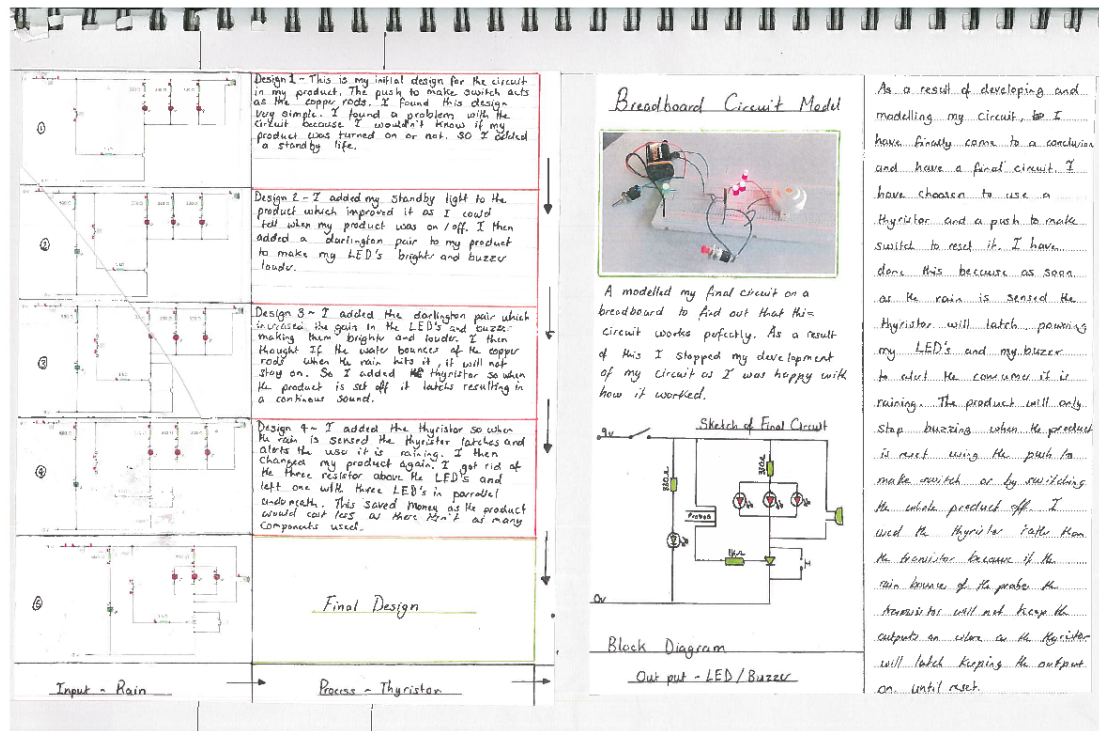 ①
Design 1 - This is my initial design for the circuit
in my product. The push to make switch acts
as the copper rods. I found this design
very simple. I found a problem with the
circuit because I wouldn't know if my
product was turned on or not. So I added
a standby life.
②
Design 2 - I added my standby light to the
product which improved it as I could
tell when my product was on/off. I then
added a darlington pair to my product
to make my LED's brighte and buzzer
louder.
③
Design 3 - I added the darlington pair which
increased the gain in the LED's and buzzer
making them brighte and louder. I then
thought If the water bounces of the copper
rods when the rain hits it, it will not
stay on. So I added thyristor so when
the product is set off it latchs resulting in
a continous sound.
④
Design 4 - I added the thyristor so when
the rain is sensed the thyrister latches and
alerts the user it is raining. I then
changed my product again. I got rid of
the three resistor above the LED's and
left one with three LED's in parrallel
underneath. This saved money as the product
would cost less as there aren't as many
components used.
⑤
Final Design
Input - Rain
Process - Thyristor
Breadboard Circuit Model
A modelled my final circuit on a
breadboard to find out that this
circuit works pefectly. As a result
of this I stopped my development
of my circuit as I was happy with
how it worked.
Sketch of Final Circuit
9v
330Ω
330Ω
Probes
1kΩ
0v
Block Diagram
Out put - LED/Buzzer
As a result of developing and
modelling my circuit, I
have finally come to a conclusion
and have a final circuit. I
have choosen to use a
thyristor and a push to make
switch to reset it. I have
done this because as soon
as the rain is sensed the
thyristor will latch powering
my LED's and my buzzer
to alert the consumer it is
raining. The product will only
stop buzzing when the product
is reset using the push to
make switch or by switching
the whole product off. I
used the thyristor rather than
the transistor because if the
rain bounce of the probe the
transistor will not keep the
outputs on where as the thyristor
will latch keeping the output
on until reset.